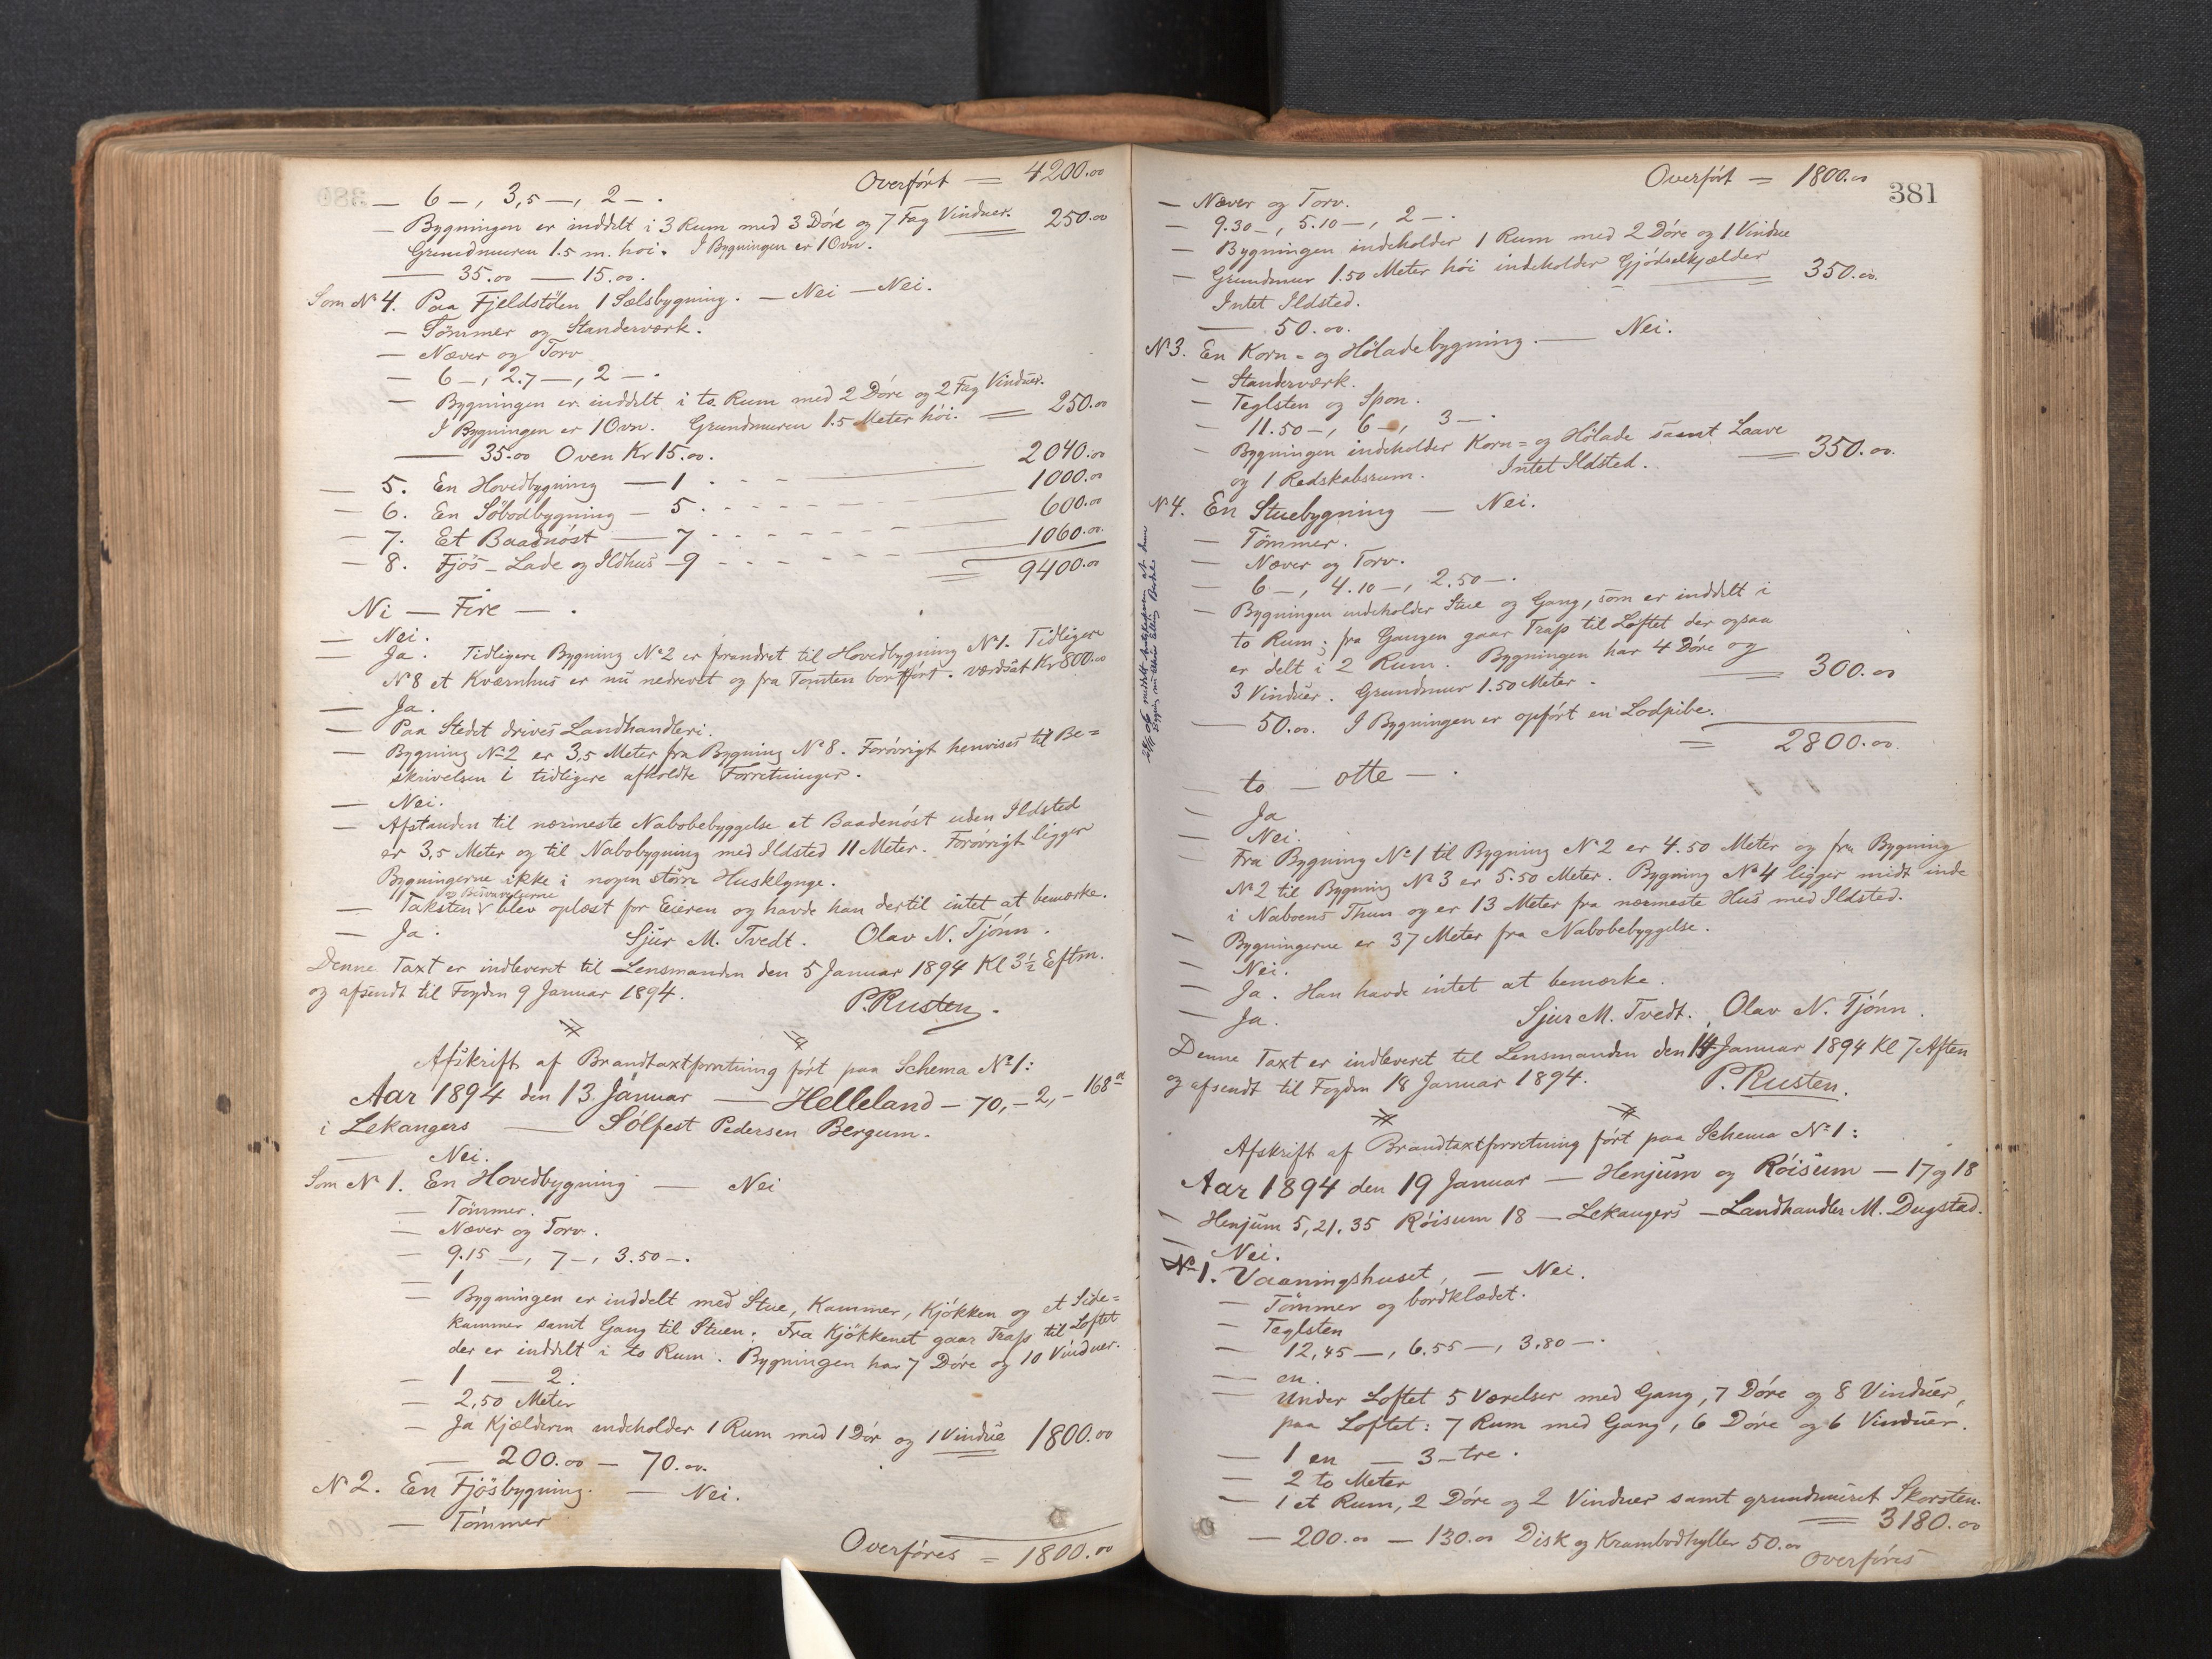 Overført = 4200.00
— 6 —, 3,5 —, 2 — .
— Bygningen er inddelt i 3 Rum med 3 Døre og 7 Fag Vinduer. 250.00
Grundmuren 1.5 m. høi. I Bygningen er 1 Ovn.
— 35.00 — 15.00.
Som No 4. Paa Fjeldstölen 1 Sælsbygning. — Nei — Nei.
— Tömmer og Standerværk.
— Næver og Torv
— 6 —, 2.7 —, 2 — .
— Bygningen er inddelt i to Rum med 2 Döre og 2 Fag Vinduer.
I Bygningen er 1 Ovn. Grundmuren 1.5 Meter höi. = 250.00
— 35.00 Oven Kr 15.00.
— 5. En Hovedbygning — 1 . - - - 2040.00
— 6. En Söbodbygning — 5 . - - - - 1000.00
— 7. Et Baadnöst — 7 - - - - - 600.00
— 8. Fjös - Lade og Ildhus — 9 - - - - 1060.00
= 9400.00
Ni — Fire — .
— Nei.
— Ja. Tidligere Bygning No 2 er forandret til Hovedbygning No 1. Tidligere
No 8 et Kværnhus er nu nedrevet og fra Tomten bortfört. værdsat Kr 800.00
— Ja.
— Paa Stedet drives Landhandleri.
— Bygning No 2 er 3,5 Meter fra Bygning No 8. Forövrigt henvises til Be=
skrivelsen i tidligere afholdte Forretninger.
— Nei.
— Afstanden til nærmeste Nabobebyggelse et Baadenöst uden Ildsted
er 3,5 Meter og til Nabobygning med Ildsted 11 Meter. Forövrigt ligger
Bygningerne ikke i nogen större Husklynge.
og Besvarelserne
— Taksten V blev oplæst for Eieren og havde han dertil intet at bemærke.
— Ja. Sjur M. Tvedt. Olav N. Tjönn.
Denne Taxt er indleveret til Lensmanden den 5 Januar 1894 Kl 3½ Eftm.
og afsendt til Fogden 9 Januar 1894. P. Rusten.
Afskrift af Brandtaxtforretning fört paa Schema No 1:
Aar 1894 den 13. Januar — Helleland — 70, — 2, — 168 a
i Lekangers — Sölfest Pedersen Bergum.
— Nei.
Som No 1. En Hovedbygning — Nei
— Tömmer.
— Næver og Torv.
— 9.15 —, 7 —, 3.50 —.
— 1
— Bygningen er inddelt med Stue, Kammer, Kjökken og et Side=
kammer samt Gang til Stuen. Fra Kjökkenet gaar Trap til Loftet
der er inddelt i to Rum. Bygningen har 7 Döre og 10 Vinduer.
— 1 — 2.
— 2,50 Meter
— Ja Kjælderen indeholder 1 Rum med 1 Dör og 1 Vindue 1800.00
— 200.00 — 70.00.
No 2. En Fjösbygning. — Nei.
— Tömmer
Overföres = 1800.00
381
Overfört = 1800.00
— Næver og Torv.
— 9.30 —, 5.10 —, 2 — .
— Bygningen indeholder 1 Rum med 2 Döre og 1 Vindue
— Grundmur 1.50 Meter höi indeholder Gjödselkjælder = 350.00.
Intet Ildsted.
— 50.00.
No 3. En Korn- og Höladebygning. — Nei.
— Standerværk.
— Teglsten og Spon.
— 11.50 —, 6 —, 3 — .
— Bygningen indeholder Korn= og Hölade samt Laave
og 1 Redskabsrum. Intet Ildsted. = 350.00.
No 4. En Stuebygning — Nei.
— Tömmer.
— Næver og Torv.
— 6 —, 4.10 —, 2.50 — .
— Bygningen indeholder Stue og Gang, som er inddelt i
to Rum; fra Gangen gaar Trap til Loftet der ogsaa
er delt i 2 Rum. Bygningen har 4 Döre og
3 Vinduer. Grundmur 1.50 Meter. = 300.00
— 50.00. I Bygningen er opfört en Lodpibe.
= 2800.00.
— to — otte — .
— Ja
— Nei.
— Fra Bygning No 1 til Bygning No 2 er 4.50 Meter og fra Bygning
No 2 til Bygning No 3 er 5.50 Meter. Bygning No 4 ligger midt inde
i Naboens Thun og er 13 Meter fra nærmeste Hus med Ildsted.
— Bygningerne er 37 Meter fra Nabobebyggelse.
— Nei.
— Ja. Han havde intet at bemærke.
— Ja. Sjur M. Tvedt. Olav N. Tjönn.
Denne Taxt er indleveret til Lensmanden den 14 Januar 1894 Kl 7 Aften
og afsendt til Fogden 18 Januar 1894. P. Rusten.
Afskrift af Brandtaxtforretning fört paa Schema No 1:
Aar 1894 den 19 Januar — Henjum og Röisum — 17 og 18
— Henjum 5, 21, 35 Röisum 18 — Lekangers — Landhandler M. Dugstad.
— Nei.
No 1. Vaaningshuset, — Nei.
— Tömmer og bordklædet.
— Teglsten
— 12,45 —, 6.55 —, 3,80 — .
— en.
— Under Loftet 5 Værelser med Gang, 7 Döre og 8 Vinduer,
paa Loftet: 7 Rum med Gang, 6 Döre og 6 Vinduer.
— 1 en — 3 - tre.
— 2 to Meter
— 1 et Rum, 2 Döre og 2 Vinduer samt grundmuret Skorsten.
= 3180.00
— 200.00 — 130.00 Disk og Krambodhyller 50.00
Overföres